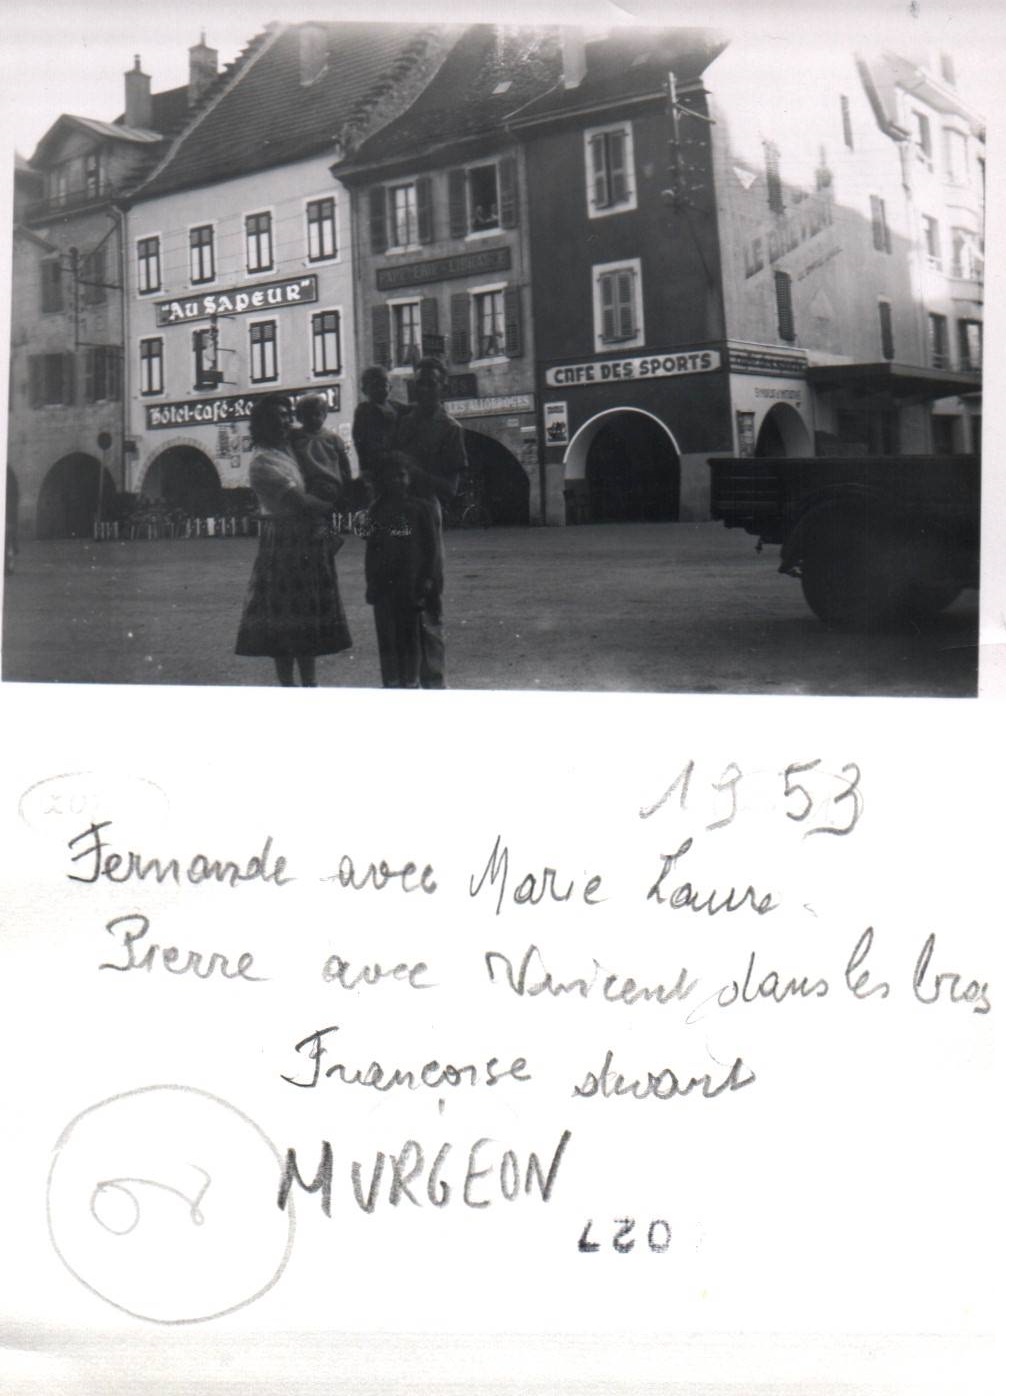 "AU SAPEUR"
PAPETERIE - LIBRAIRIE
LE
CAFE DES SPORTS
Hôtel-Café-Re
LES ALLOBROGES
1953
Fernande avec Marie Laure.
Pierre avec Vincent dans les bras
Françoise devant
MURGEON
027